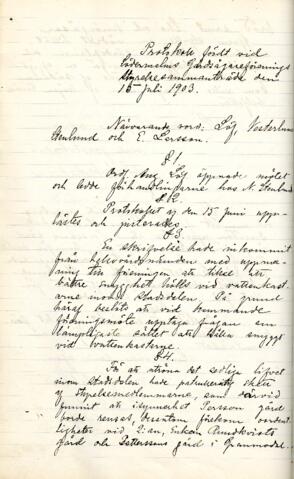 Protokoll fördt vid
Södermalms Gårdsägareförenings
styrelsesammanträde den
15 juli 1903.
Närvarande voro: Löf Vesterlund
Stenlund och E. Persson.
§ 1.
Ordf. Aug. Löf öppnade mötet
och ledde förhandlingarne hos N. Stenlund
§ 2.
Protokollet af den 15 juni upp-
lästes och justerades.
§ 3.
En skrifvelse hade inkommit
från helsovårdsnämnden med uppma-
ning till föreningen att tillse att
bättre snygghet hölls vid vattenkast-
arne inom stadsdelen. På grund
häraf beslöts att vid kommande
föreningsmöte upptaga frågan om
lämpligaste sättet att hålla snyggt
vid vattenkastarne.
§ 4.
För att utröna det sedliga lifvet
inom stadsdelen hade
af styrelsemedlemmarne, som därvid
funnit att isynnerhet Persson gård
borde rensas, dessutom förekom oordent-
ligheter vid 2:an, Enkan Rundkvists
gård och Pettersons gård i Granmodel..